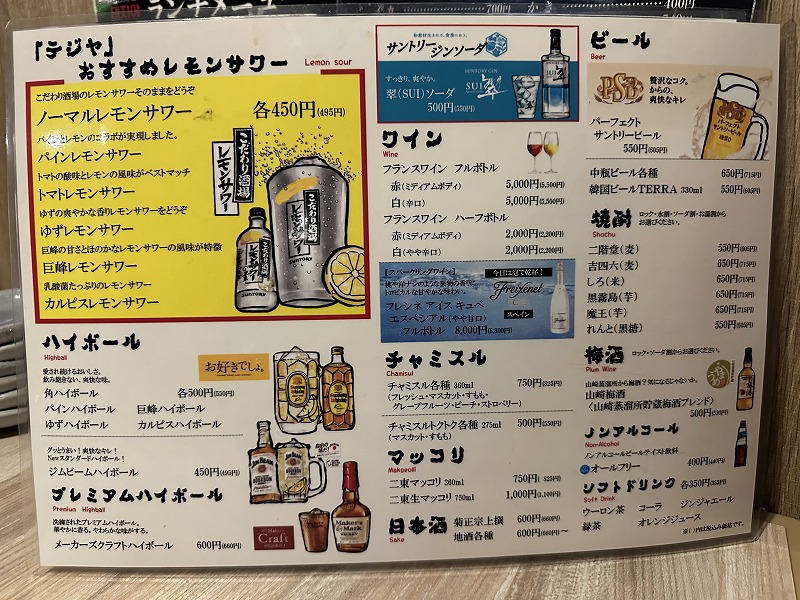 ランチメニュー
700円
400円
「テジヤ」
おすすめレモンサワー
Lemon sour
こだわり酒場のレモンサワーそのままをどうぞ
ノーマルレモンサワー 各450円(495円)
パインとレモンのコラボが実現しました。
パインレモンサワー
トマトの酸味とレモンの風味がベストマッチ
トマトレモンサワー
ゆずの爽やかな香りレモンサワーをどうぞ
ゆずレモンサワー
巨峰の甘さとほのかなレモンサワーの風味が特徴
巨峰レモンサワー
乳酸菌たっぷりのレモンサワー
カルピスレモンサワー
こだわり酒場
レモンサワー
こだわり酒場の
レモンサワー
SUNTORY
ハイボール
Highball
お好きでしょ。
愛され続けるおいしさ。
飲み飽きない、爽快な味。
角ハイボール 各500円(550円)
パインハイボール 巨峰ハイボール
ゆずハイボール カルピスハイボール
グッとうまい!爽快なキレ!
Newスタンダードハイボール!
ジムビームハイボール 450円(495円)
JIM BEAM
プレミアムハイボール
Premium Highball
洗練されたプレミアムハイボール。
華やかに香る。やわらかな味がする。
メーカーズクラフトハイボール 600円(660円)
Maker's
Craft
Maker's
Mark
サントリージンソーダ
すっきり、爽やか。
翠(SUI)ソーダ
500円(550円)
SUNTORY GIN
SUI 翠
ワイン
Wine
フランスワイン フルボトル
赤(ミディアムボディ) 5,000円(5,500円)
白(辛口) 5,000円(5,500円)
フランスワイン ハーフボトル
赤(ミディアムボディ) 2,000円(2,200円)
白(やや辛口) 2,000円(2,200円)
【スパークリングワイン】
桃や洋ナシのような果物の香りに
トロピカルな甘やかな味わい。
フレシネ アイス キュベ
エスペシアル(やや甘口)
フルボトル 8,000円(8,800円)
今日は泡で乾杯!
Freixenet
スペイン
チャミスル
Chamisul
チャミスル各種 360ml 750円(825円)
(フレッシュ・マスカット・すもも・
グレープフルーツ・ピーチ・ストロベリー)
チャミスルトクトク各種 275ml 500円(550円)
(マスカット・すもも)
マッコリ
Makgeolli
二東マッコリ 360ml 750円(825円)
二東生マッコリ 750ml 1,000円(1,100円)
日本酒
Sake
菊正宗上撰 600円(660円)
地酒各種 600円(660円)〜
ビール
Beer
PSB
贅沢なコク。
からの、
爽快なキレ
パーフェクト
サントリービール
550円(605円)
パーフェクト
サントリービール
糖質0
中瓶ビール各種 650円(715円)
韓国ビールTERRA 330ml 550円(605円)
焼酎
Shochu
ロック・水割・ソーダ割・お湯割から
お選びください。
二階堂(麦) 550円(605円)
吉四六(麦) 650円(715円)
しろ(米) 650円(715円)
黒霧島(芋) 650円(715円)
魔王(芋) 650円(715円)
れんと(黒糖) 550円(605円)
梅酒
Plum Wine
ロック・ソーダ割からお選びください。
山崎蒸溜所から梅酒?気になるじゃないか。
山崎梅酒
〈山崎蒸溜所貯蔵梅酒ブレンド〉
500円(550円)
ノンアルコール
Non-Alcohol
ノンアルコールビールテイスト飲料
オールフリー 400円(440円)
ソフトドリンク 各350円(385円)
Soft Drink
ウーロン茶 コーラ ジンジャエール
緑茶 オレンジジュース
※( )内は税込み価格です。